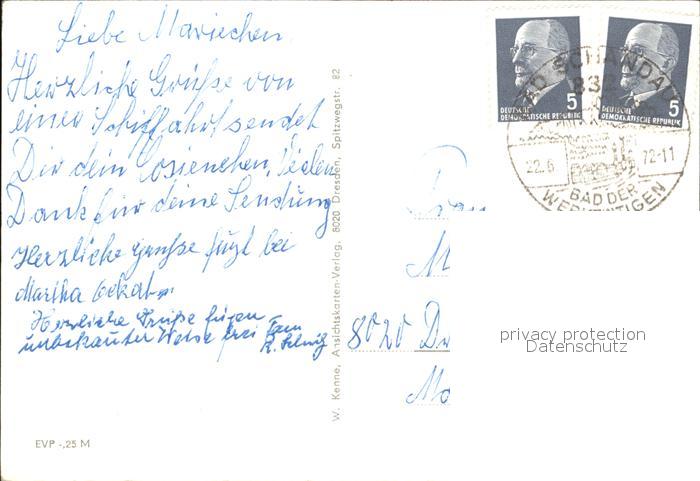 Liebe Mariechen
Herzliche Grüße von
einer Schiffahrt sendet
Dir dein Cosienchen, Vielen
Dank für deine Sendung
Herzliche Grüße fügt bei
Martha
Herzliche Grüße fügen
unbekannter Weise bei Fam
EVP -,25 M
W. Kenne, Ansichtskarten-Verlag, 8020 Dresden, Spitzwegstr. 82
DEUTSCHE
DEMOKRATISCHE REPUBLIK
5
DEUTSCHE
DEMOKRATISCHE REPUBLIK
5
BAD SCHANDAU
832
22.6
72-11
BAD DER
WERKTÄTIGEN
Frau
M
8020 Dr
Mo
privacy protection
Datenschutz